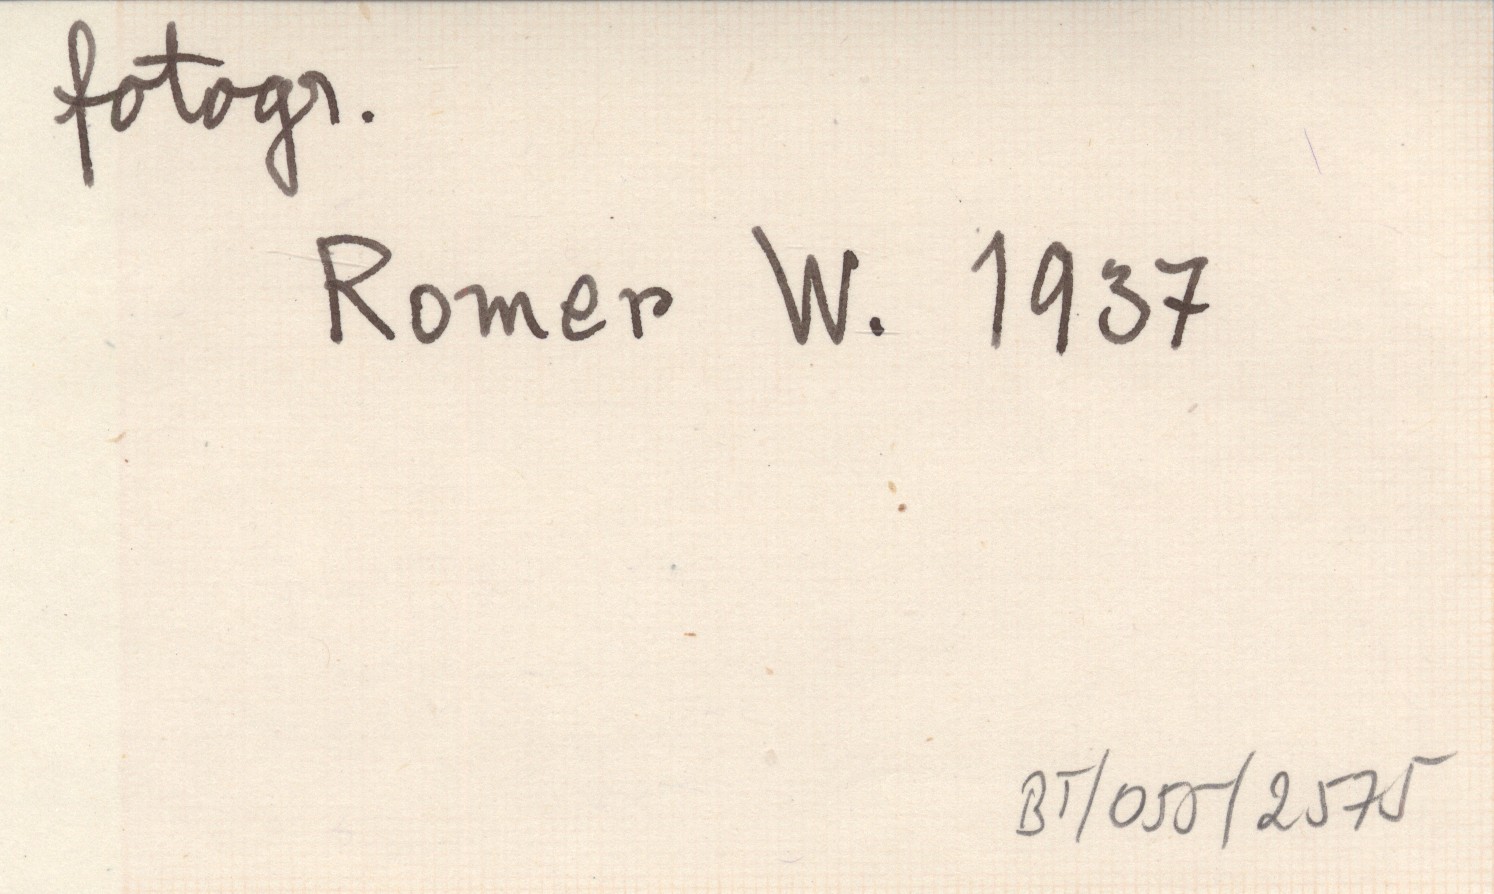 fotogr.
Romer W. 1937
BT/055/2575